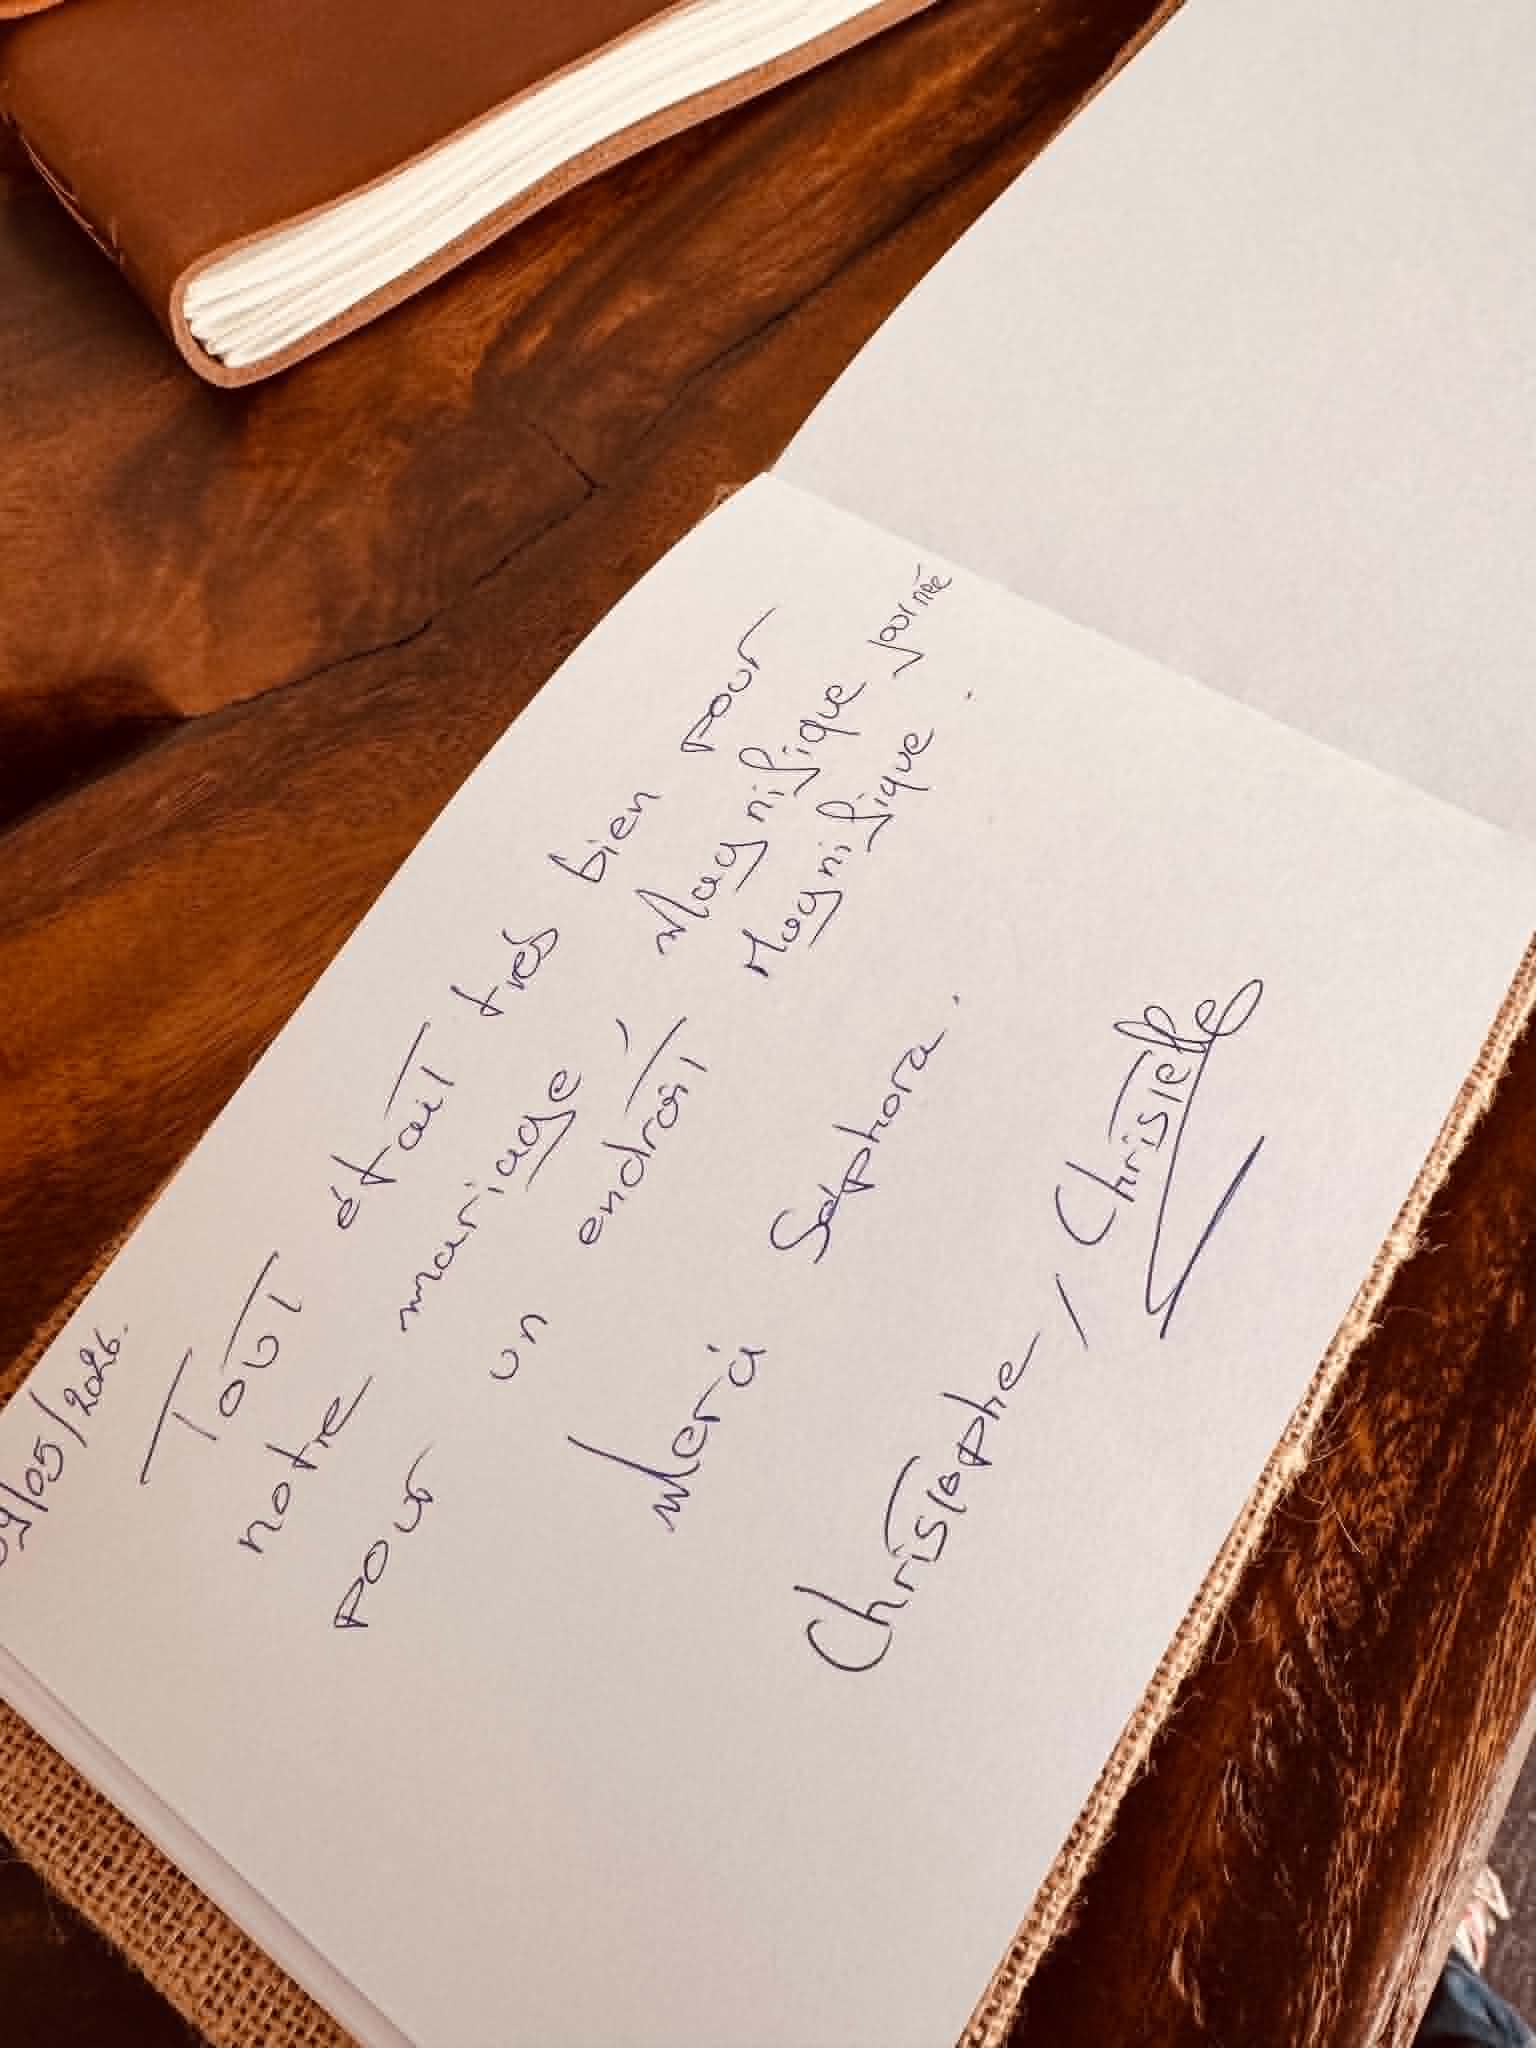 09/05/2026.
Tout était très bien pour
notre mariage, Magnifique journée
pour un endroit Magnifique.
Merci Séphora.
Christophe / Christelle